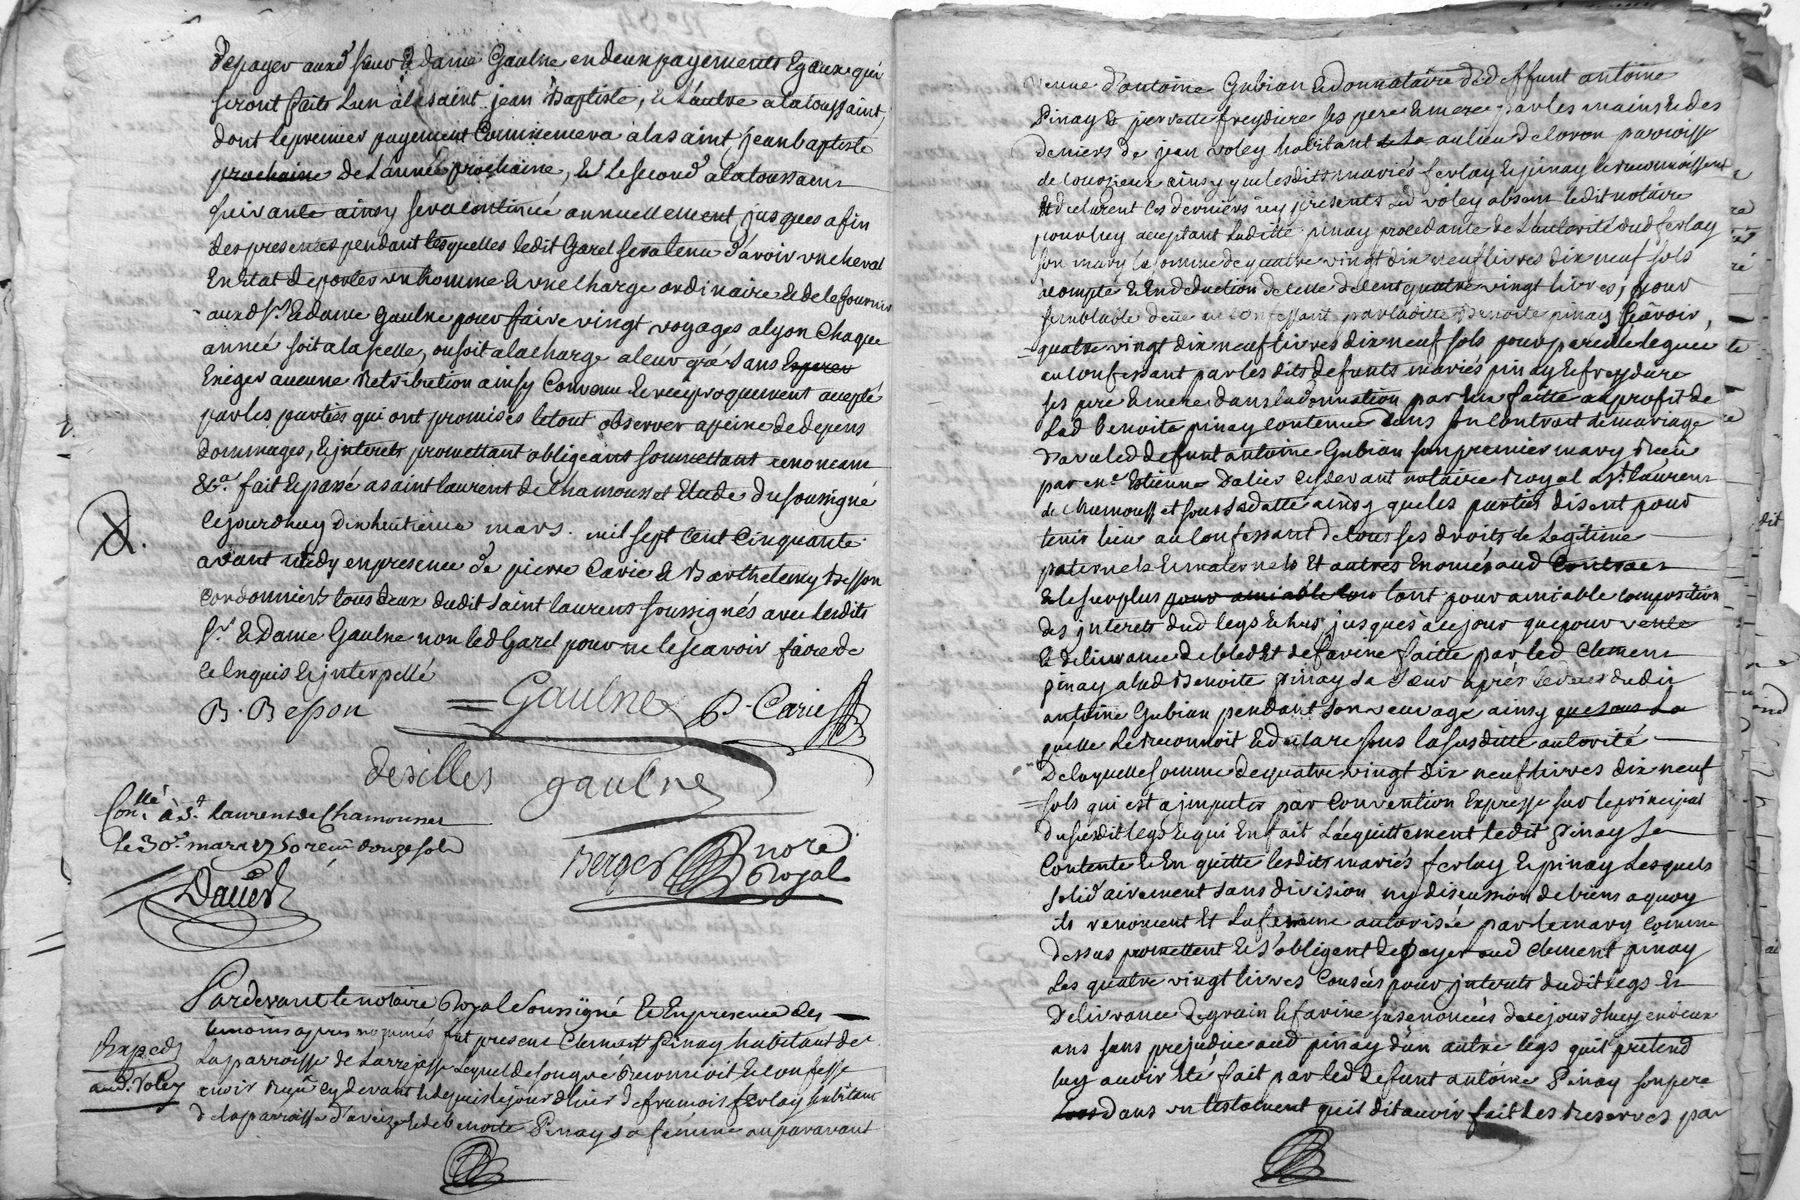 depayer auxd sieur & dame Gaulne en deux payements Egaux qui
seront faits L'un à la saint jean Baptiste, & L'autre a la toussaint,
dont le premier payement Commencera à la saint jean baptiste
prochaine de L'année prochaine, & Le second a la toussaint
suivante ainsy sera continué annuellement jusques a fin
des presentes pendant lesquelles ledit Garel sera tenu d'avoir un cheval
En Etat de porter un homme & une charge ordinaire & de le fournir
auxd Sr & dame Gaulne pour faire vingt voyages a Lyon Chaque
année soit a la selle, ou soit a la charge a leur gré sans
Exiger aucune Retribution ainsy Convenu & reciproquement accepté
par les parties qui ont promises le tout observer a peine de depens
dommages, & jnterets promettant obligeants soumettant renonceant
&ca. fait & passé a saint laurent de Chamousset Etude du soussigné
Cejourdhuy dixhuitieme mars mil sept Cent Cinquante
avant midy en presence de pierre Carie & Barthelemy Besson
Cordonniers tous deux dudit saint laurens soussignés avec lesdits
Sr. & dame Gaulne non led Garel pour ne le scavoir faire de
ce Enquis & jnterpellé
B. Besson Gaulne P. Carie
desilles gaulne
Conllé à St. laurent de Chamousset
le 30e. mars 1750 reçu douze sols
Dalier
Berger nore Royal
Pardevant le notaire Royal soussigné & En presence des
temoins apres nommés fut present Clement Pinay habitant de
Exped
La parroisse de Larrajasse Lequel de son gré Reconnoit & confesse
aud. Voley
avoir reçu cy devant & depuis le jour d'hier de francois ferlay habitant
de la parroisse d'aveize & de benoite Pinay sa femme auparavant
veuve d'antoine Gubian & donnataire dud deffunt antoine
Pinay & pervette freydiere ses pere & mere par les mains & des
deniers de jean voley habitant au lieu de loron parroisse
de coursieux ainsy que lesdits mariés ferlay & pinay le reconnoissent
& declarent ces derniers icy presents Led voley absent ledit notaire
pour luy acceptant Laditte pinay procedante de L'autorité dud ferlay
son mary la somme de quatre vingt dix neuf livres dix neuf sols
acompte & En deduction de celle de cent quatre vingt livres, pour
semblable deüe en confessant par laditte Benoite pinay scavoir,
quatre vingt dix neuf livres dix neuf sols pour pareille leguée
en confessant par les dits defunts mariés pinay & freydiere
ses pere & mere dans la donnation par eux faitte au profit de
Lad benoite pinay contenüe dans son Contrat de mariage
d'avec led defunt antoine Gubian son premier mary Reçû
par me. Estienne Dalier cydevant notaire Royal a St. laurent
de Chamousset sous sa datte ainsy que les parties disent pour
tenir lieu au confessant de tous ses droits de Legitime
paternels & maternels Et autres Enoncés aud Contract
& le surplus pour amiable com tant pour amiable composition
des jnterets dud legs Echus jusques à ce jour que pour vente
& delivrance de bled Et de farine faitte par led Clement
pinay alad Benoite pinay sa sœur aprés le deces dudit
antoine Gubian pendant son veuvage ainsy que sans La
quelle le reconnoit & declare sous la susditte autorité
De laquelle somme de quatre vingt dix neuf livres dix neuf
sols qui est a jmputer par Convention Expresse sur le principal
du susdit legs & qui En fait L'acquittement ledit Pinay se
Contente & En quitte lesdits mariés ferlay & pinay Lesquels
solid'airement sans division ny discussion de biens a quoy
ils renoncent Et La femme autorisée par le mary comme
dessus promettent & s'obligent de payer aud Clement pinay
Les quatre vingt livres Causées pour jnterets dudit legs Et
Delivrance de grain & farine susenoncées dece jour d'huy en deux
ans sans prejudice aud pinay d'un autre legs qu'il pretend
luy avoir été fait par led defunt antoine Pinay son pere
dans un testament qu'il dit avoir fait Les Reserves par